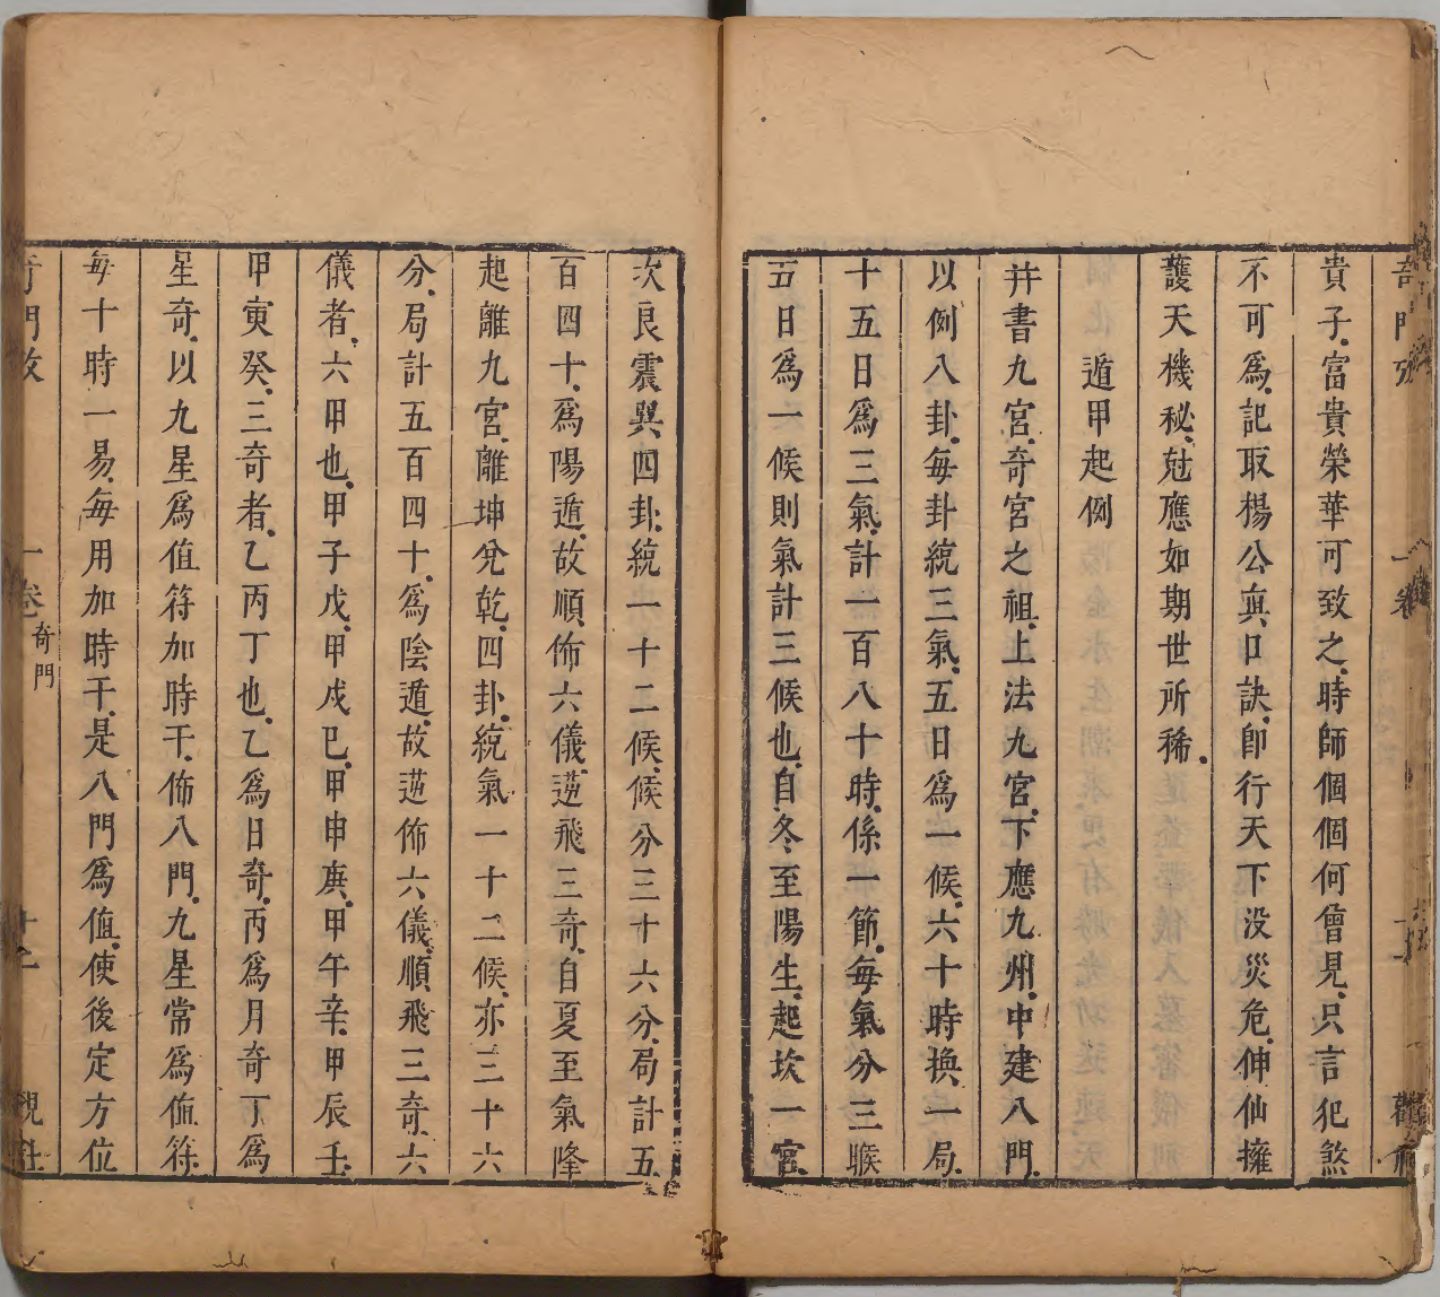 貴子.富貴榮華可致之.時師個個何曾見.只言犯煞
不可爲.記取楊公真口訣.卽行天下没災危.伸仙擁
護天機秘.尅應如期世所稀.
遁甲起例
并書九宮.奇宮之祖.上法九宮.下應九州.中建八門.
以例八卦.每卦統三氣.五日爲一候.六十時換一局.
十五日爲三氣.計一百八十時.係一節.每氣分三㬋
五日爲一候則氣計三候也.自冬至陽生.起坎一宮.
次艮震巽四卦.統一十二候.候分三十六分.局計五
百四十.爲陽遁.故順佈六儀.逆飛三奇.自夏至氣降
起離九宮.離坤兊乾.四卦.統氣一十二候.亦三十六
分.局計五百四十.爲陰遁.故逆佈六儀.順飛三奇.六
儀者.六甲也.甲子戊.甲戌巳.甲申庚.甲午辛.甲辰壬.
甲寅癸.三奇者.乙丙丁也.乙爲日奇.丙爲月奇丁爲
星奇.以九星爲值符加時干.佈八門.九星常爲值符.
每十時一易.每用加時干.是八門爲值.使後定方位
一卷 奇門